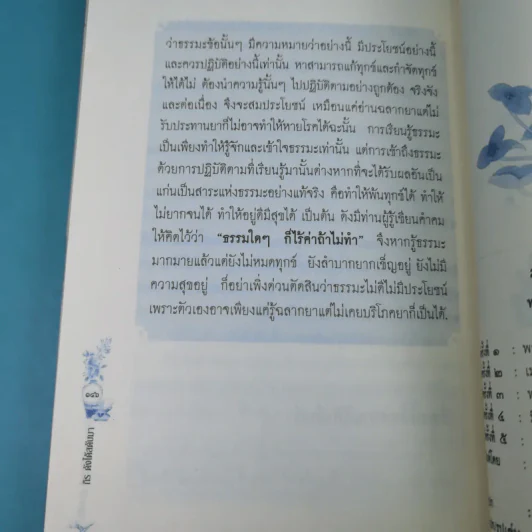 ว่าธรรมะข้อนั้นๆ มีความหมายว่าอย่างนี้ มีประโยชน์อย่างนี้
และควรปฏิบัติอย่างนี้เท่านั้น หาสามารถแก้ทุกข์และกำจัดทุกข์
ให้ได้ไม่ ต้องนำความรู้นั้นๆ ไปปฏิบัติตามอย่างถูกต้อง จริงจัง
และต่อเนื่อง จึงจะสมประโยชน์ เหมือนแค่อ่านฉลากยาแต่ไม่
รับประทานยาก็ไม่อาจทำให้หายโรคได้ฉะนั้น การเรียนรู้ธรรมะ
เป็นเพียงทำให้รู้จักและเข้าใจธรรมะเท่านั้น แต่การเข้าถึงธรรมะ
ด้วยการปฏิบัติตามที่เรียนรู้มานั้นต่างหากที่จะได้รับผลอันเป็น
แก่นเป็นสาระแห่งธรรมะอย่างแท้จริง คือทำให้พ้นทุกข์ได้ ทำให้
ไม่ยากจนได้ ทำให้อยู่ดีมีสุขได้ เป็นต้น ดังมีท่านผู้รู้เขียนคำคม
ให้คิดไว้ว่า “ธรรมใดๆ ก็ไร้ค่าถ้าไม่ทำ” จึงหากรู้ธรรมะ
มากมายแล้วแต่ยังไม่หมดทุกข์ ยังลำบากยากเข็ญอยู่ ยังไม่มี
ความสุขอยู่ ก็อย่าเพิ่งด่วนตัดสินว่าธรรมะไม่ดีไม่มีประโยชน์
เพราะตัวเองอาจเพียงแค่รู้ฉลากยาแต่ไม่เคยบริโภคยาก็เป็นได้.
ที่ ๑ :
ที่ ๒ :
ที่ ๓ :
ที่ ๔ :
ที่ ๕ :